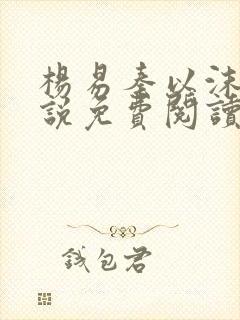 楊易秦以沫
說免費閱讀
錢包君